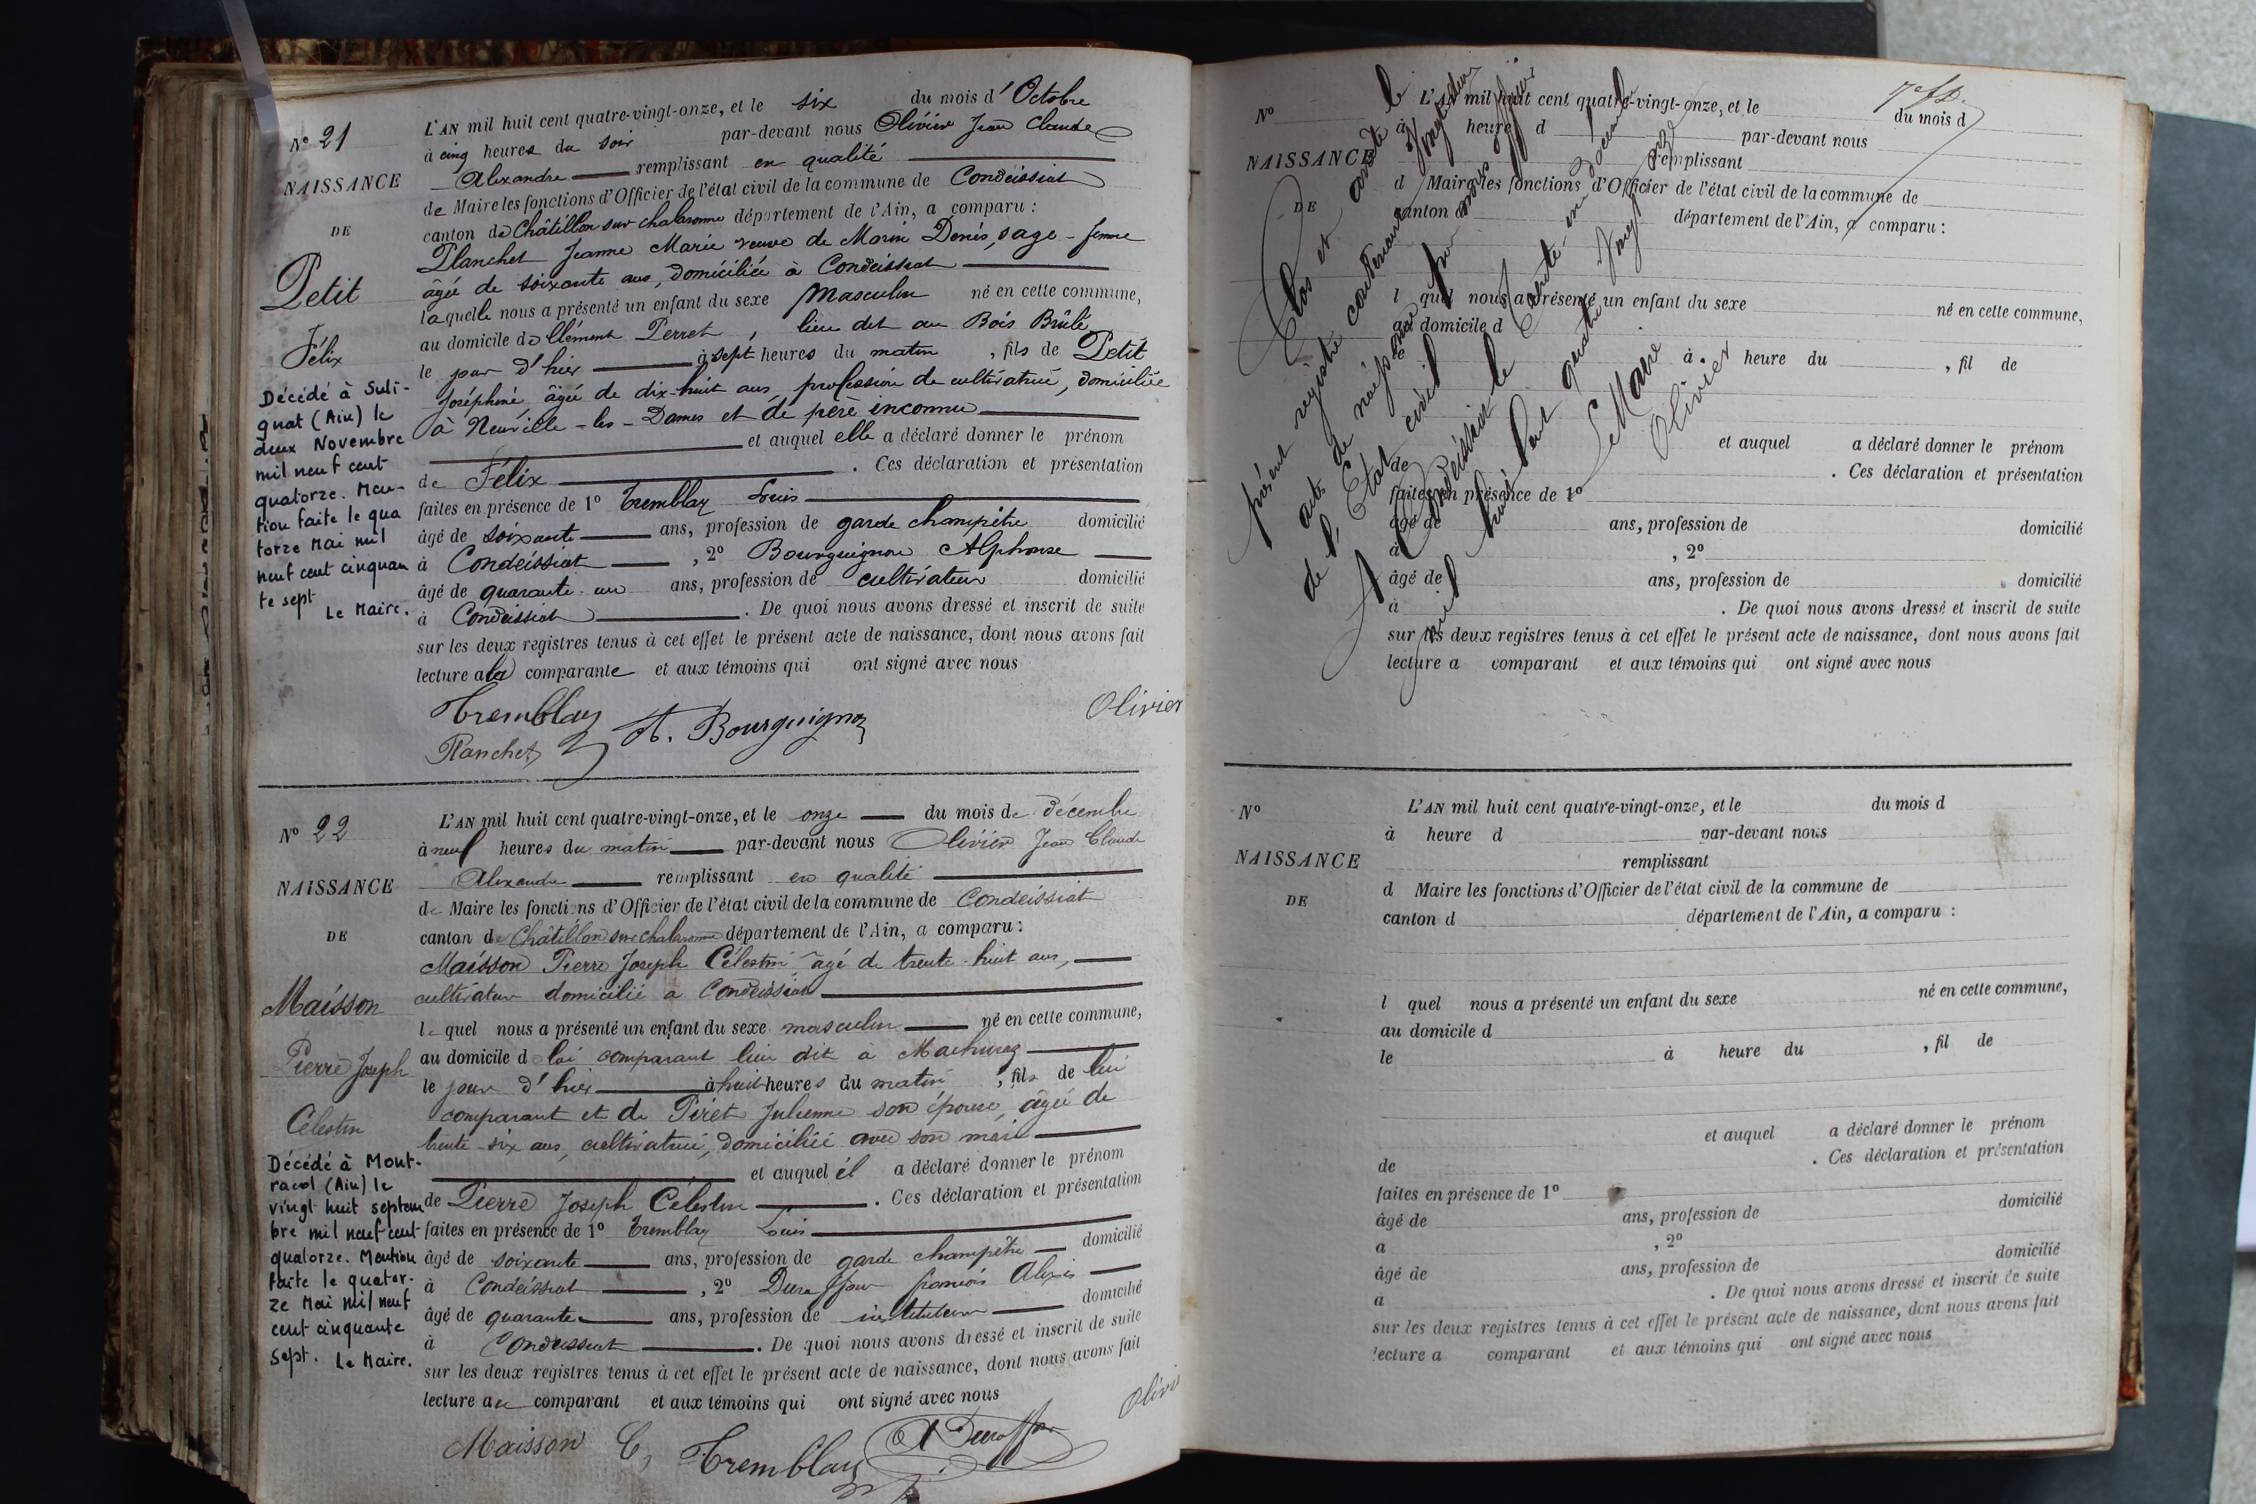 N° 21
NAISSANCE
DE
Petit
Félix
Décédé à Suli-
gnat (Ain) le
deux Novembre
mil neuf cent
quatorze. Men-
tion faite le qua
torze Mai mil
neuf cent cinquan
te sept
Le Maire.
L'AN mil huit cent quatre-vingt-onze, et le six du mois d'Octobre
à cinq heures du soir par-devant nous Olivier Jean Claude
Alexandre remplissant en qualité
de Maire les fonctions d'Officier de l'état civil de la commune de Condeissiat
canton de Châtillon sur chalaronne département de l'Ain, a comparu :
Planchet Jeanne Marie veuve de Morin Denis, sage-femme
âgée de soixante ans, domiciliée à Condeissiat
laquelle nous a présenté un enfant du sexe Masculin né en cette commune,
au domicile de Clément Perret, lieu dit au Bois Brûlé
le jour d'hier à sept heures du matin, fils de Petit
Joséphine âgée de dix-huit ans, profession de cultivatrice, domiciliée
à Neuville-les-Dames et de père inconnu
et auquel elle a déclaré donner le prénom
de Félix. Ces déclaration et présentation
faites en présence de 1° Tremblay Louis
âgé de soixante ans, profession de garde champêtre domicilié
à Condeissiat, 2° Bourguignon Alphonse
âgé de quarante-un ans, profession de cultivateur domicilié
à Condeissiat. De quoi nous avons dressé et inscrit de suite
sur les deux registres tenus à cet effet le présent acte de naissance, dont nous avons fait
lecture à la comparante et aux témoins qui ont signé avec nous
Tremblay
Planchet A. Bourguignon Olivier
N° 22
NAISSANCE
DE
Maisson
Pierre Joseph
Célestin
Décédé à Mont-
racol (Ain) le
vingt huit septem
bre mil neuf cent
quatorze. Mention
faite le quator-
ze Mai mil neuf
cent cinquante
sept. Le Maire.
L'AN mil huit cent quatre-vingt-onze, et le onze du mois de décembre
à neuf heures du matin par-devant nous Olivier Jean Claude
Alexandre remplissant en qualité
de Maire les fonctions d'Officier de l'état civil de la commune de Condeissiat
canton de Châtillon sur chalaronne département de l'Ain, a comparu :
Maisson Pierre Joseph Célestin âgé de trente-huit ans,
cultivateur domicilié à Condeissiat
lequel nous a présenté un enfant du sexe masculin né en cette commune,
au domicile de lui comparant lieu dit à
le jour d'hier à huit heures du matin, fils de lui
comparant et de Piret Julienne son épouse, âgée de
trente-six ans, cultivatrice, domiciliée avec son mari
et auquel il a déclaré donner le prénom
de Pierre Joseph Célestin. Ces déclaration et présentation
faites en présence de 1° Tremblay Louis
âgé de soixante ans, profession de garde champêtre domicilié
à Condeissiat, 2° Duraffour françois Alexis
âgé de quarante ans, profession de instituteur domicilié
à Condeissiat. De quoi nous avons dressé et inscrit de suite
sur les deux registres tenus à cet effet le présent acte de naissance, dont nous avons fait
lecture au comparant et aux témoins qui ont signé avec nous
Maisson C, Tremblay Duraffour Olivier
N°
NAISSANCE
DE
L'AN mil huit cent quatre-vingt-onze, et le du mois d
à heure d par-devant nous
remplissant
d Maire les fonctions d'Officier de l'état civil de la commune de
canton d département de l'Ain, a comparu :
l quel nous a présenté un enfant du sexe né en cette commune,
au domicile d
le à heure du , fil de
et auquel a déclaré donner le prénom
de . Ces déclaration et présentation
faites en présence de 1°
âgé de ans, profession de domicilié
à , 2°
âgé de ans, profession de domicilié
à . De quoi nous avons dressé et inscrit de suite
sur les deux registres tenus à cet effet le présent acte de naissance, dont nous avons fait
lecture a comparant et aux témoins qui ont signé avec nous
Clos et arrêté le
présent registre contenant Vingt-deux
actes de naissance par nous officier
de l'État civil
A Condeissiat le trente-un décembre
mil huit cent quatre Vingt onze
Le Maire
Olivier
N°
NAISSANCE
DE
L'AN mil huit cent quatre-vingt-onze, et le du mois d
à heure d par-devant nous
remplissant
d Maire les fonctions d'Officier de l'état civil de la commune de
canton d département de l'Ain, a comparu :
l quel nous a présenté un enfant du sexe né en cette commune,
au domicile d
le à heure du , fil de
et auquel a déclaré donner le prénom
de . Ces déclaration et présentation
faites en présence de 1°
âgé de ans, profession de domicilié
a , 2°
âgé de ans, profession de domicilié
a . De quoi nous avons dressé et inscrit de suite
sur les deux registres tenus à cet effet le présent acte de naissance, dont nous avons fait
lecture a comparant et aux témoins qui ont signé avec nous